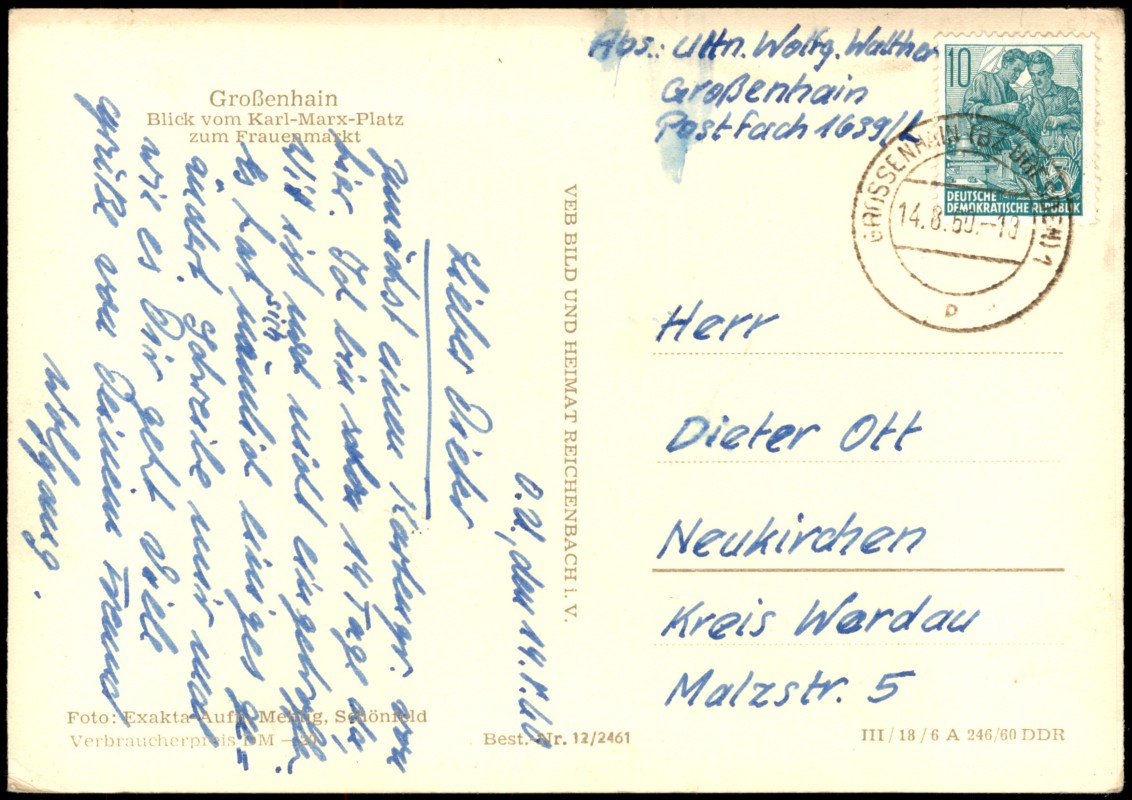 Großenhain
Blick vom Karl-Marx-Platz
zum Frauenmarkt
Abs.: Uttn. Wolfg. Walther
Großenhain
Postfach 1639/L
10
DEUTSCHE
DEMOKRATISCHE REPUBLIK
GROSSENHAIN (BZ DRESDEN) 1
14.8.60.-18
Herr
Dieter Ott
Neukirchen
Kreis Werdau
Malzstr. 5
VEB BILD UND HEIMAT REICHENBACH i. V.
O.U., den 14.8.60
Lieber Dieter
Zunächst einen Kartengr. von
hier. Ich bin schon 14 Tage da
Mit ist noch nicht eingetr.
Es hat sich nämlich einiges ge-
ändert. Schreibe mir mal
wie es Dir geht. Viele
grüße von Deinem Freund
Wolfgang.
Foto: Exakta-Aufn. Meißig, Schönfeld
Verbraucherpreis DM —.20
Best.-Nr. 12/2461
III/18/6 A 246/60 DDR